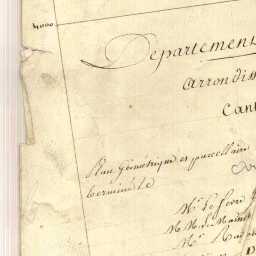 4000
Département
Arrondiss
Cant
Plan Géométrique et parcellaire
terminé le
Mr. Lefevre
M. M. Le
Mr.